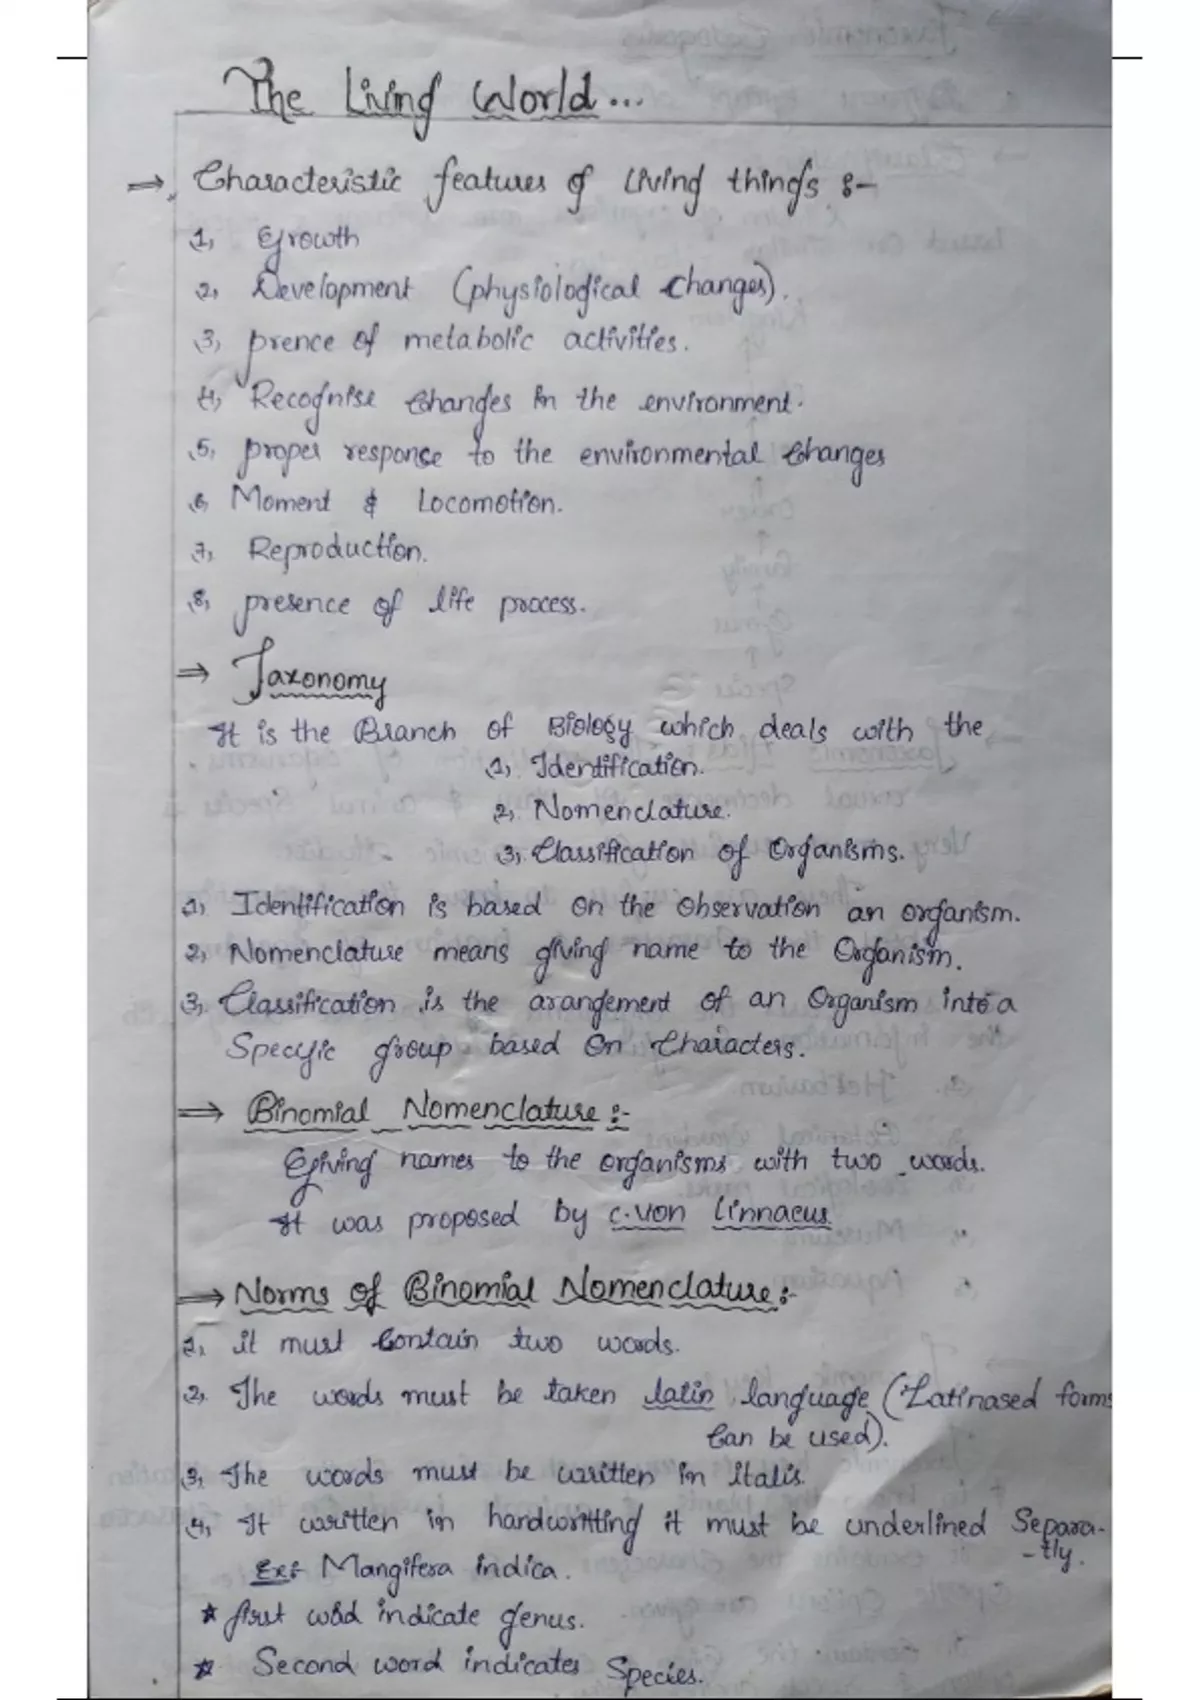 The Living World...
⇒ Characteristic features of Living things :-
1, Growth
2, Development (physiological changes).
3, prence of metabolic activities.
4, Recognise changes in the environment.
5, proper responce to the environmental changes
6, Moment & Locomotion.
7, Reproduction.
8, presence of life process.
⇒ Taxonomy
It is the Branch of Biology which deals with the
1, Identification.
2, Nomenclature.
3, Classification of Organisms.
1, Identification is based on the Observation an organism.
2, Nomenclature means giving name to the Organism.
3, Classification is the arangement of an Organism into a
Specific group based on Characters.
⇒ Binomial Nomenclature :-
Giving names to the organisms with two words.
It was proposed by C.von Linnaeus
⇒ Norms of Binomial Nomenclature :-
1, it must Contain two words.
2, The words must be taken latin language (Latinased forms
Can be used).
3, The words must be written in italis.
4, It written in handwritting it must be underlined Separa-
-tly.
Ex:- Mangifera indica.
* first word indicate genus.
* Second word indicates Species.